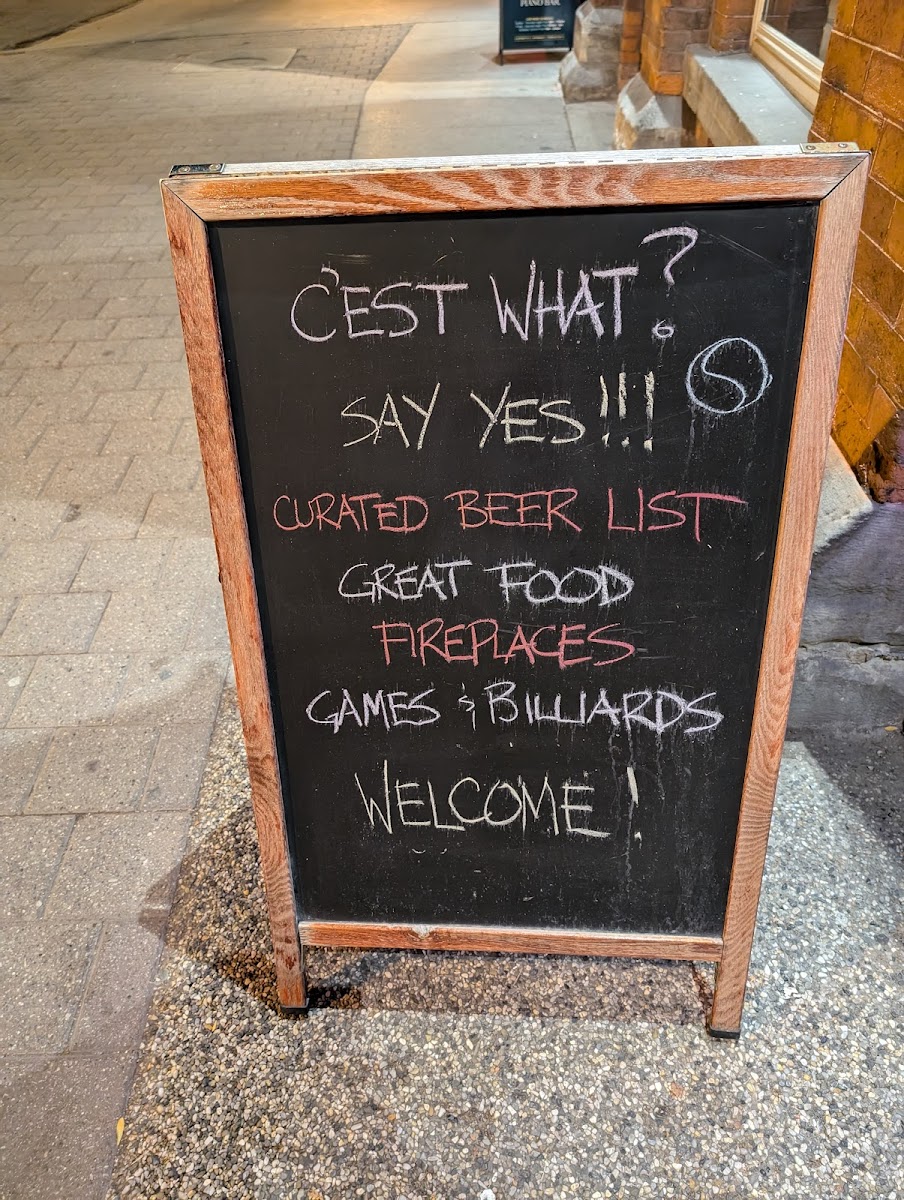 PIANO BAR
C'EST WHAT?
SAY YES!!!
CURATED BEER LIST
GREAT FOOD
FIREPLACES
GAMES & BILLIARDS
WELCOME!